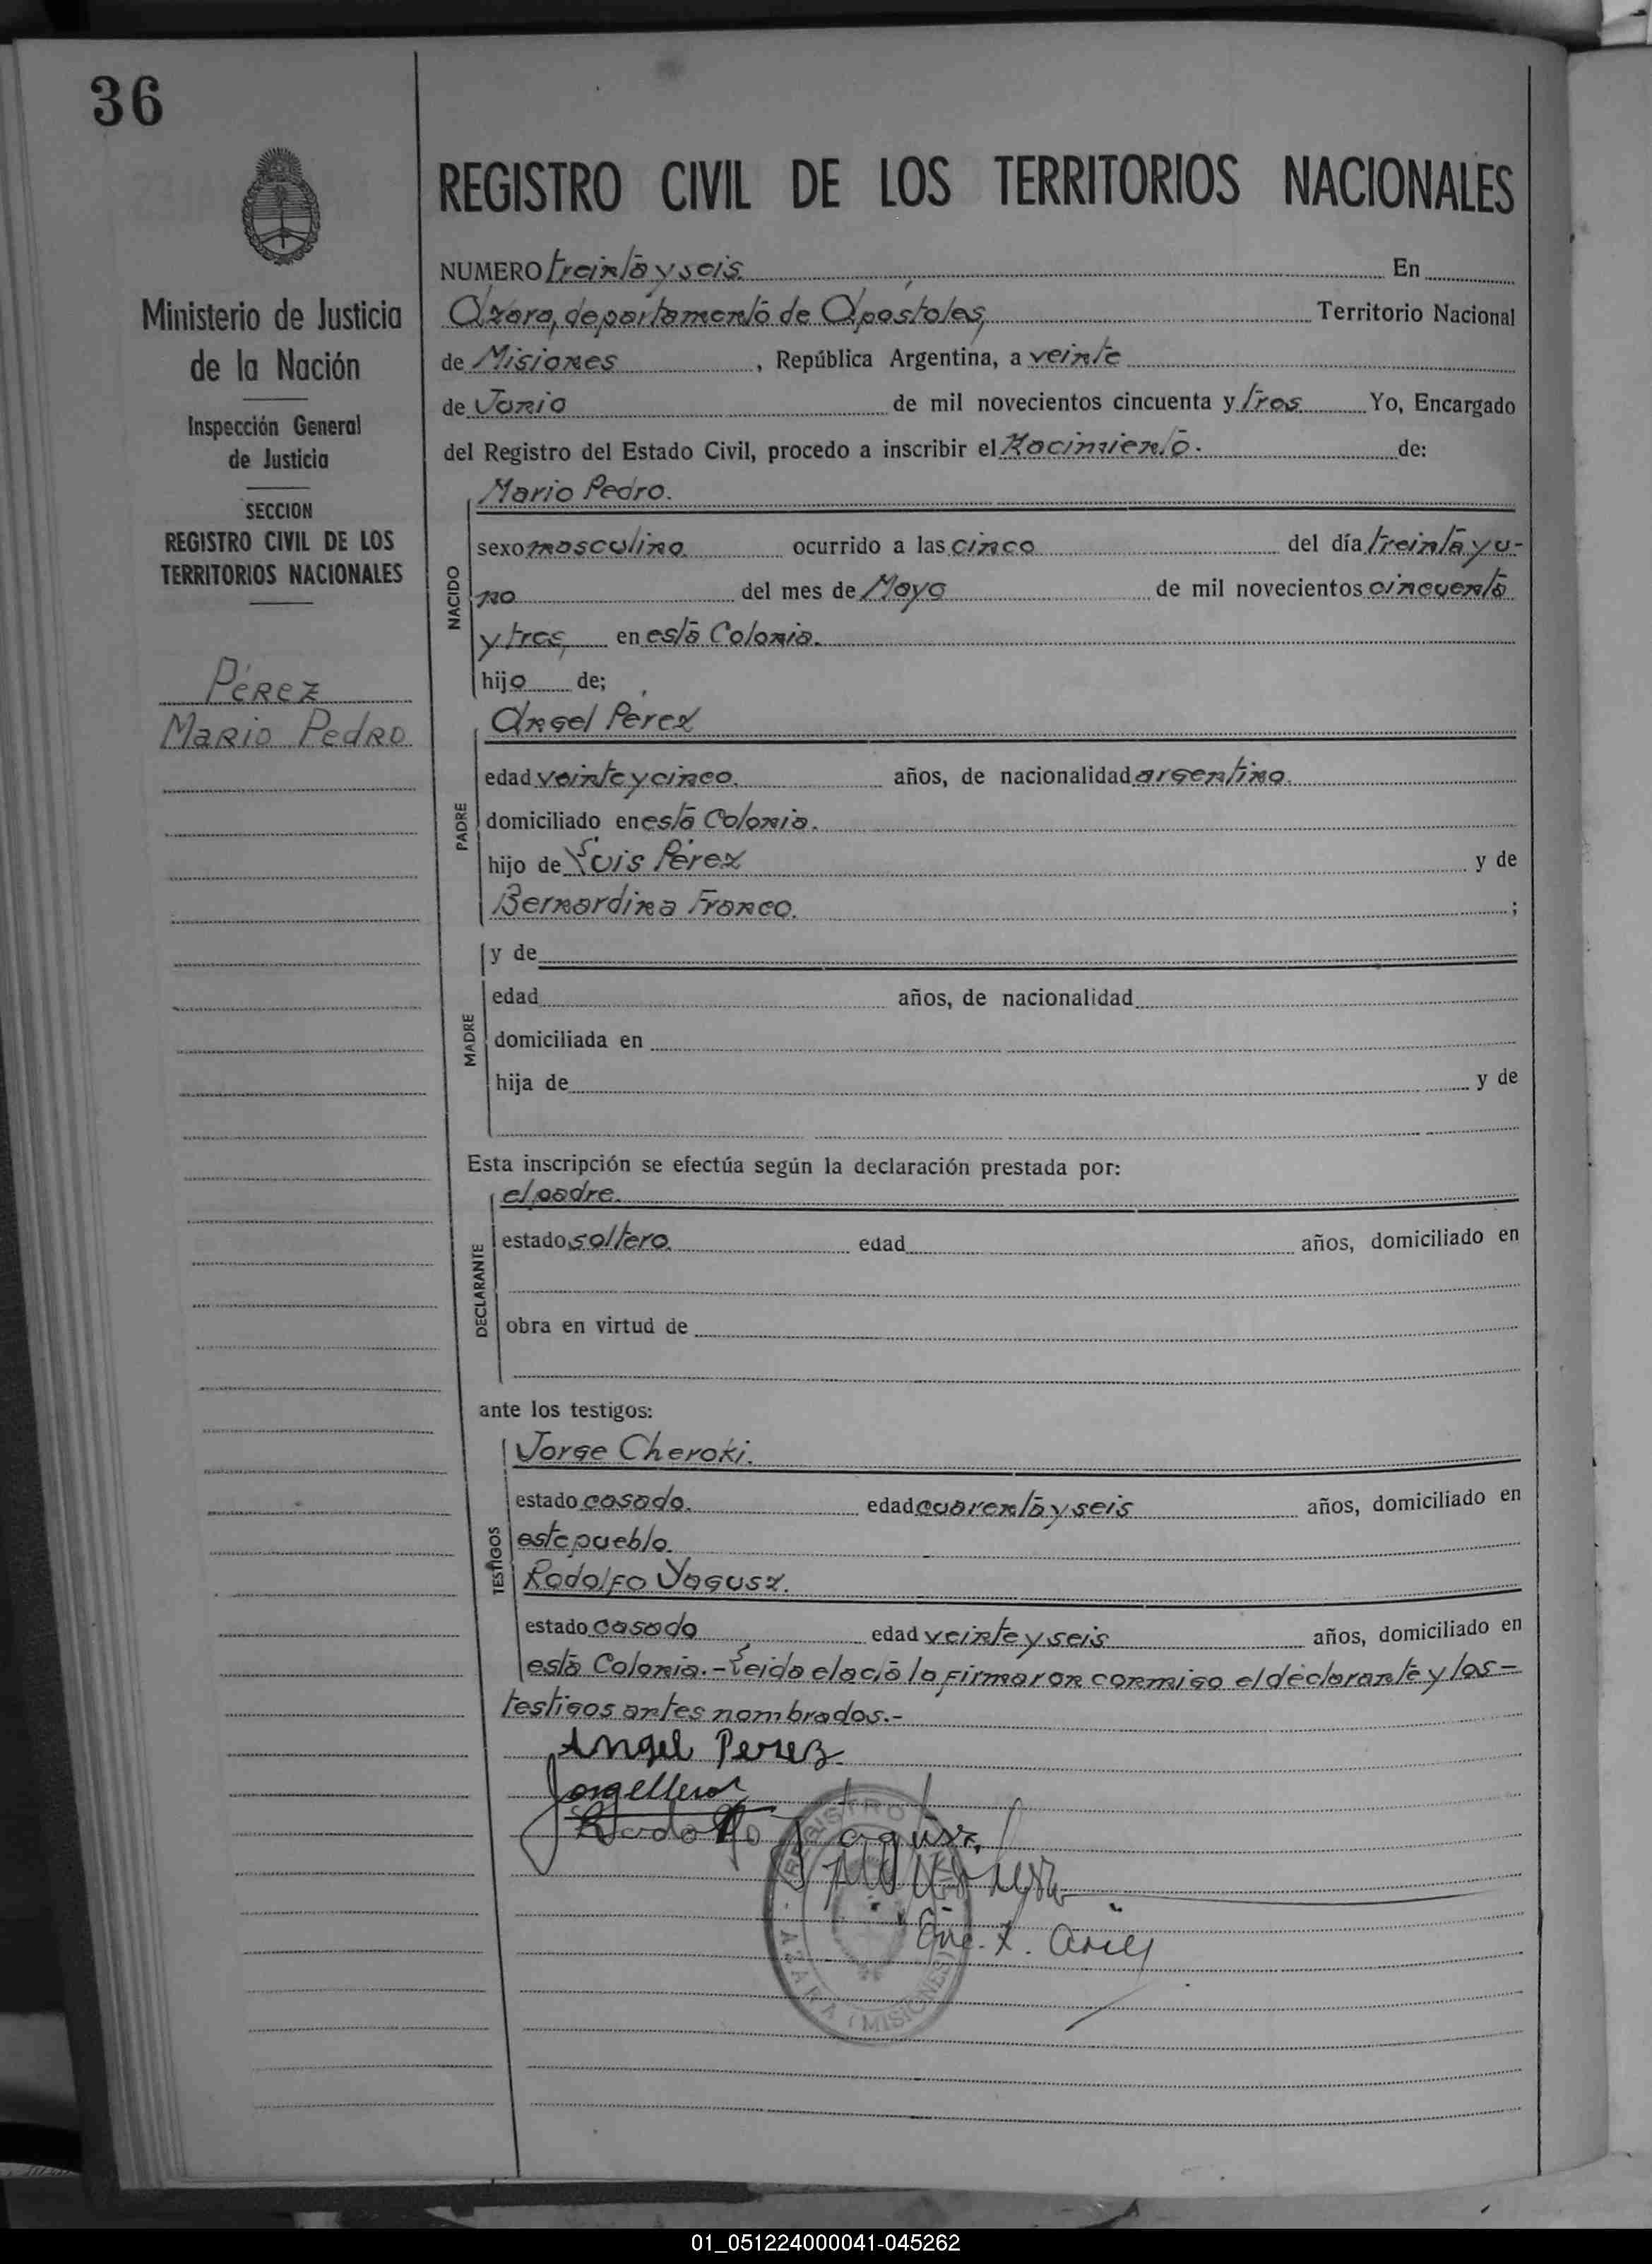 36
REGISTRO CIVIL DE LOS TERRITORIOS NACIONALES
Ministerio de Justicia
de la Nación
Inspección General
de Justicia
SECCION
REGISTRO CIVIL DE LOS
TERRITORIOS NACIONALES
Pérez
Mario Pedro
NUMERO treinta y seis. En
Azara, departamento de Apóstoles, Territorio Nacional
de Misiones, República Argentina, a veinte
de Junio de mil novecientos cincuenta y tres Yo, Encargado
del Registro del Estado Civil, procedo a inscribir el Nacimiento. de:
Mario Pedro.
NACIDO
sexo masculino ocurrido a las cinco del día treinta y u-
no del mes de Mayo de mil novecientos cincuenta
y tres, en esta Colonia.
hijo de;
Angel Perez
PADRE
edad veinte y cinco. años, de nacionalidad argentina.
domiciliado en esta Colonia.
hijo de Luis Pérez y de
Bernardina Franco. ;
y de
MADRE
edad años, de nacionalidad
domiciliada en
hija de y de
Esta inscripción se efectúa según la declaración prestada por:
el padre.
DECLARANTE
estado soltero. edad años, domiciliado en
obra en virtud de
ante los testigos:
Jorge Cheroki.
TESTIGOS
estado casado. edad cuarenta y seis años, domiciliado en
este pueblo.
Rodolfo Yagusz.
estado casado edad veinte y seis años, domiciliado en
esta Colonia.- Leida el acta la firmaron conmigo el declarante y los-
testigos antes nombrados.-
Angel Perez
Rodolfo Yagusz
REGISTRO
AZARA (MISIONES)
01_051224000041-045262